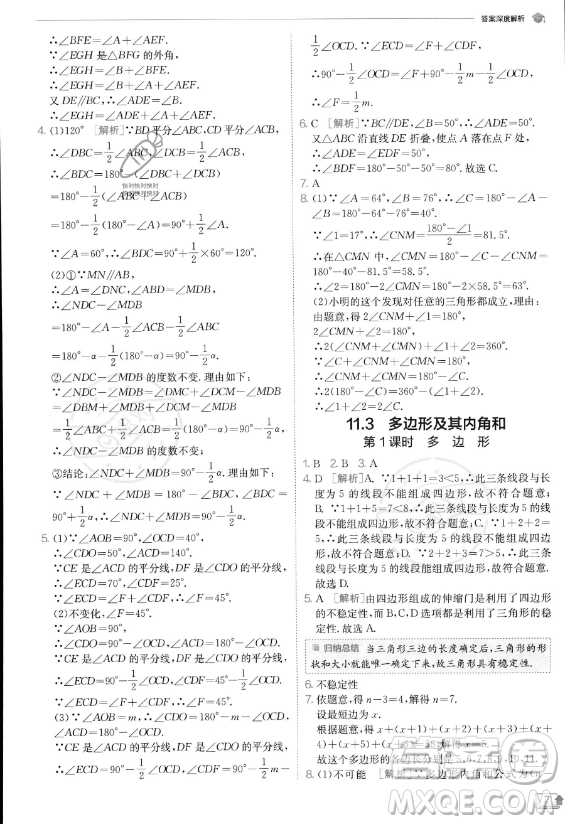 答案深度解析
∴∠BFE=∠A+∠AEF.
∵∠EGH是△BFG的外角,
∴∠EGH=∠B+∠BFE.
∴∠EGH=∠B+∠A+∠AEF.
又∵DE∥BC,∴∠AED=∠C.
∴∠EGH=∠ADE+∠A+∠AEF.
4. (1)120° [解析]∵BD平分∠ABC,CD平分∠ACB,
∴∠DBC=1/2∠ABC,∠DCB=1/2∠ACB.
∴∠BDC=180°-(∠DBC+∠DCB)
=180°-1/2(∠ABC+∠ACB)
=180°-1/2(180°-∠A)=90°+1/2∠A.
∵∠A=60°,∴∠BDC=90°+1/2×60°=120°.
(2)①∵MN∥AB,
∴∠MDB=∠ABD=1/2∠ABC.
∴∠NDC-∠MDB
=180°-∠BDC-∠ABD-∠MDB
=180°-α-1/2∠ABC-1/2∠ABC
=180°-α-1/2(180°-α)=90°-1/2α.
②∠NDC-∠MDB的度数不变.理由如下:
∵∠NDC-∠MDB=∠DMC+∠DCM-∠MDB=
∠DBM+∠BDM+∠DCM-∠MDB=∠DBM+
∠DCM=1/2(180°-∠A)=90°-1/2α,
∴∠NDC-∠MDB的度数不变.
③结论:∠NDC+∠MDB=90°-1/2α.
∵∠NDC+∠MDB=180°-∠BDC,∠BDC=90°+1/2α,
∴∠NDC+∠MDB=90°-1/2α.
5. (1)∵∠AOB=90°,∠OCD=40°,
∴∠CDO=50°,∠ACD=140°.
∵CE是∠ACD的平分线,DF是∠CDO的平分线,
∴∠ECD=70°,∠CDF=25°.
∵∠ECD=∠F+∠CDF,∴∠F=45°.
(2)不变化,∠F=45°.
∵∠AOB=90°,
∴∠CDO=90°-∠OCD,∠ACD=180°-∠OCD.
∵CE是∠ACD的平分线,DF是∠CDO的平分线,
∴∠ECD=90°-1/2∠OCD,∠CDF=45°-1/2∠OCD.
∵∠ECD=∠F+∠CDF,∴∠F=45°.
(3)∵∠AOB=m,∴∠CDO=180°-m-∠OCD,
∠ACD=180°-∠OCD.
∵CE是∠ACD的平分线,DF是∠CDO的平分线,
∴∠ECD=90°-1/2∠OCD,∠CDF=90°-1/2m-
1/2∠OCD.∵∠ECD=∠F+∠CDF,
∴90°-1/2∠OCD=∠F+90°-1/2m-1/2∠OCD.
∴∠F=1/2m.
6. C [解析]∵BC∥DE,∠B=50°,∴∠ADE=50°.
又∵△ABC沿直线DE折叠,使点A落在点F处,
∴∠ADE=∠EDF=50°.
∴∠BDF=180°-50°-50°=80°.故选C.
7. A
8. (1)∵∠A=64°,∠B=76°,∴∠C=180°-∠A-
∠B=40°.
∵∠1=17°,∴∠CNM=(180°-∠1)/2=81.5°.
∴在△CMN中,∠CMN=180°-∠C-∠CNM=58.5°.
∴∠2=180°-2∠CMN=180°-2×58.5°=63°.
(2)小明的这个发现对任意的三角形都成立,理由如下:
由题意,得2∠CNM+∠1=180°,
2∠CMN+∠2=180°,
∴2(∠CNM+∠CMN)+∠1+∠2=360°.
∵∠C+∠CNM+∠CMN=180°,
∴∠CNM+∠CMN=180°-∠C.
∴2(180°-∠C)+∠1+∠2=360°.
∴∠1+∠2=2∠C.
11.3 多边形及其内角和
第1课时 多 边 形
1. B 2. B 3. A
4. D [解析]A.∵1+1+1=3<5,∴此三条线段与长
度为5的线段不能组成四边形,故不合题意;
B.∵1+1+3=5,∴此三条线段与长度为5的线
段不能组成四边形,故不合题意;C.∵1+2+2=
5,∴此三条线段与长度为5的线段不能组成四边
形,故不合题意;D.∵1+2+3=6>5,∴此三条线
段与长度为5的线段能组成四边形,故符合题意.
故选D.
5. A [解析]由四边形组成的伸缩门是利用了四边形
的不稳定性,而B,C,D选项都是利用了三角形的稳
定性.故选A.
归纳总结 当三角形三边的长度确定后,三角形的形
状和大小就能唯一确定下来,故三角形具有稳定性.
6. 不稳定性
7. 依题意,得n-3=4,解得n=7.
设最短边为x.
根据题意,得x+(x+1)+(x+2)+(x+3)+(x+
4)+(x+5)+(x+6)=56,解得x=5.
故这个多边形的各边长分别是5,6,7,8,9,10,11.
8. (1)不可能 [解析]∵多边形内角和公式为(n-
答案圈
MXQE.COM